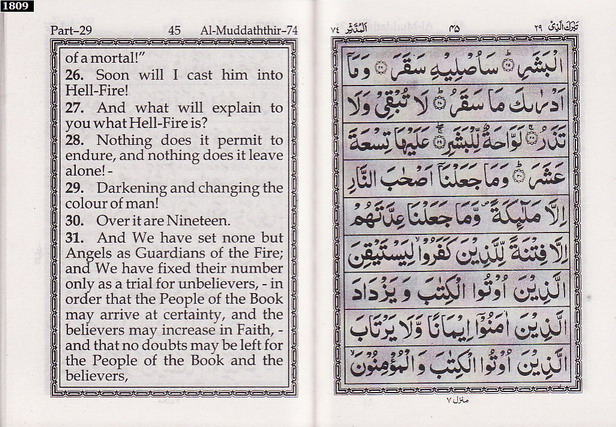 1809
Part–29 45 Al-Muddaththir–74
of a mortal!”
26. Soon will I cast him into
Hell-Fire!
27. And what will explain to
you what Hell-Fire is?
28. Nothing does it permit to
endure, and nothing does it leave
alone! -
29. Darkening and changing the
colour of man!
30. Over it are Nineteen.
31. And We have set none but
Angels as Guardians of the Fire;
and We have fixed their number
only as a trial for unbelievers, - in
order that the People of the Book
may arrive at certainty, and the
believers may increase in Faith, -
and that no doubts may be left for
the People of the Book and the
believers,
تبٰرك الذی ٢٩ ٤٥ المدثر ٧٤
الْبَشَرِ ﴿٢٥﴾ سَاُصْلِيْهِ سَقَرَ ﴿٢٦﴾ وَمَاۤ
اَدْرٰىكَ مَا سَقَرُ ﴿٢٧﴾ لَا تُبْقِيْ وَلَا
تَذَرُ ﴿٢٨﴾ لَوَّاحَةٌ لِّلْبَشَرِ ﴿٢٩﴾ عَلَيْهَا تِسْعَةَ
عَشَرَ ﴿٣٠﴾ وَمَا جَعَلْنَاۤ اَصْحٰبَ النَّارِ
اِلَّا مَلٰٓئِكَةً وَّمَا جَعَلْنَا عِدَّتَهُمْ
اِلَّا فِتْنَةً لِّلَّذِيْنَ كَفَرُوْا لِيَسْتَيْقِنَ
الَّذِيْنَ اُوْتُوا الْكِتٰبَ وَيَزْدَادَ
الَّذِيْنَ اٰمَنُوْۤا اِيْمَانًا وَّلَا يَرْتَابَ
الَّذِيْنَ اُوْتُوا الْكِتٰبَ وَالْمُؤْمِنُوْنَ
منزل ٧